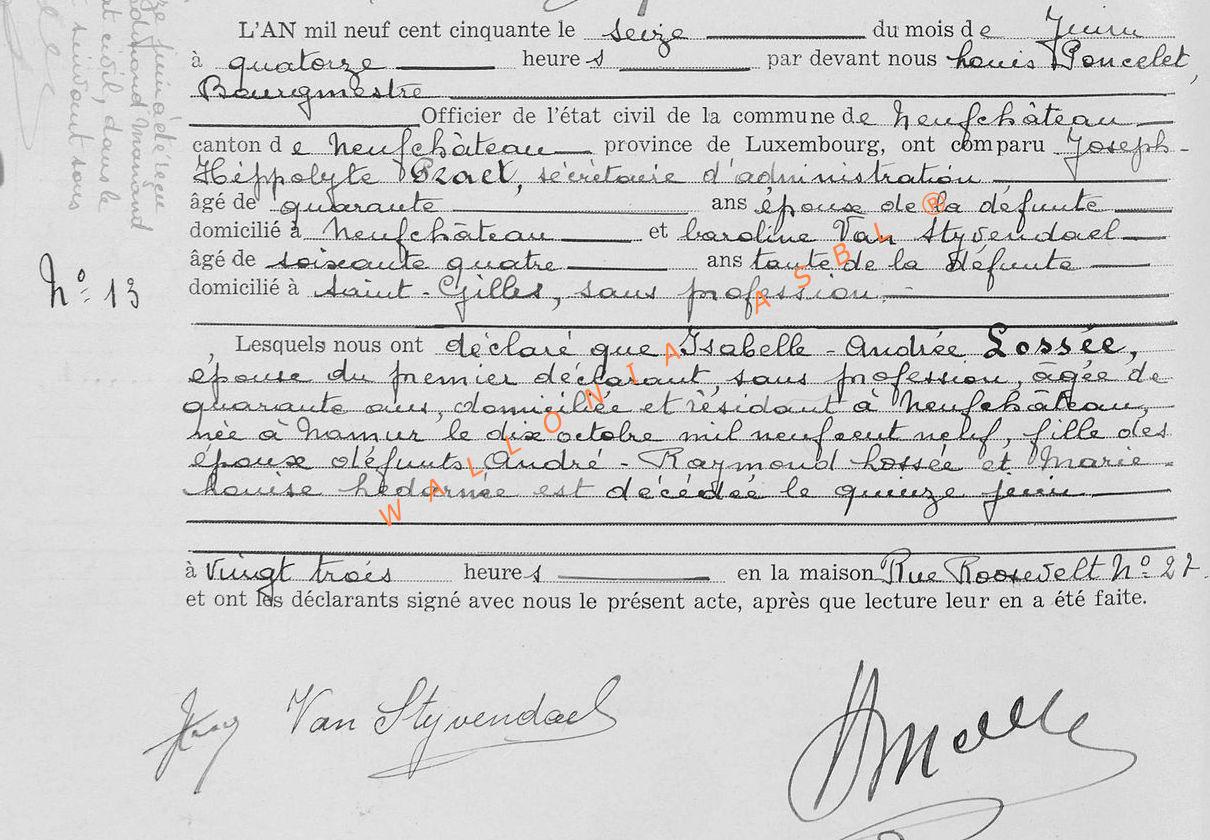 L'AN mil neuf cent cinquante le seize du mois de Juin
à quatorze heures par devant nous Louis Poncelet,
Bourgmestre
Officier de l'état civil de la commune de Neufchâteau
canton de Neufchâteau province de Luxembourg, ont comparu Joseph-
Héppolyte secrétaire d'administration
âgé de quarante ans époux de la défunte
domicilié à Neufchâteau et Caroline Van Styvendael
âgé de soixante quatre ans tante de la défunte
N° 13
domicilié à Saint-Gilles, sans profession.
Lesquels nous ont déclaré que Isabelle-Andrée Lossée,
épouse du premier déclarant, sans profession, agée de
quarante ans, domiciliée et résidant à Neufchâteau,
née à Namur le dix octobre mil neuf cent neuf, fille des
époux défunts André-Raymond Lossée et Marie-
Louise est décédée le quinze juin
à vingt trois heures en la maison Rue Roosevelt N° 27.
et ont les déclarants signé avec nous le présent acte, après que lecture leur en a été faite.
Van Styvendael
WALLONIA ASBL ®